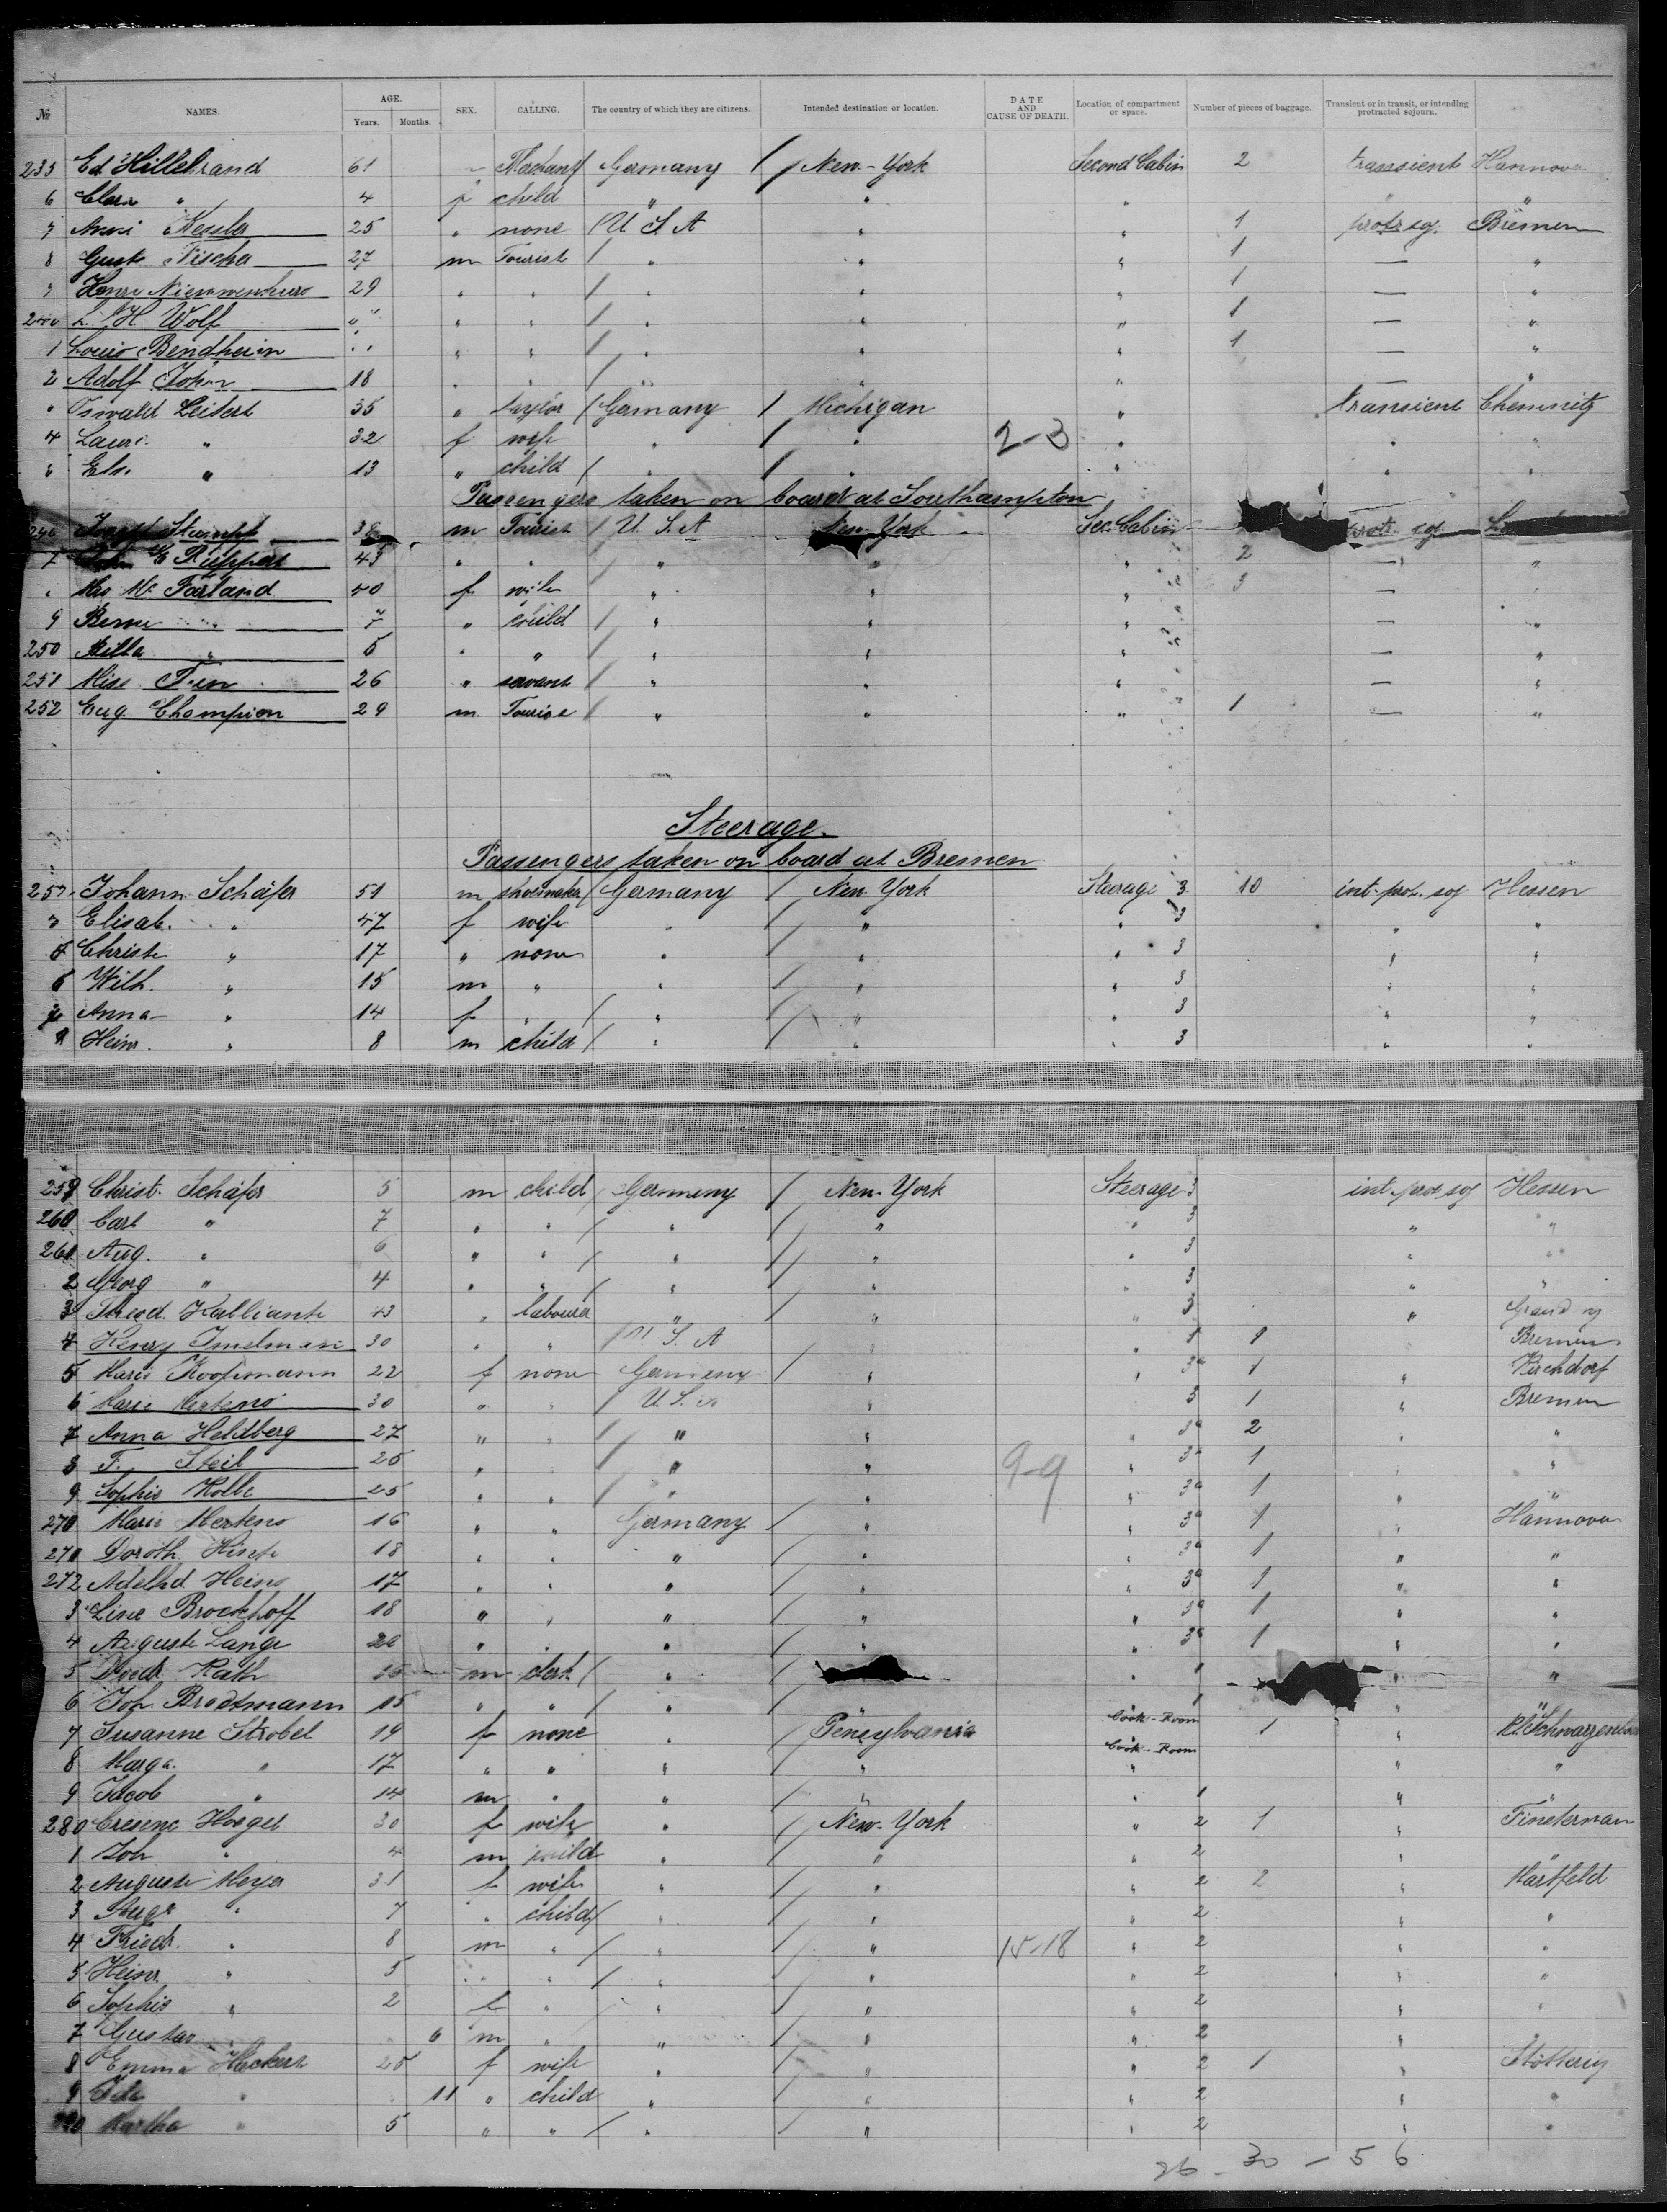 № NAMES. AGE. Years. Months. SEX. CALLING. The country of which they are citizens. Intended destination or location. DATE AND CAUSE OF DEATH. Location of compartment or space. Number of pieces of baggage. Transient or in transit, or intending protracted sojourn.
235 Ed Hillebrand 61 Germany / New-York Second Cabin 2 transient Hannover
6 Clara " 4 f child " " "
7 Anni Kessler 25 " none / U. S. A " " 1 protr soj. Bremen
8 Gust. 27 m Tourist / " " " 1 — "
29 " " / " " " 1 — "
L. H. Wolf " " " / " " " 1 — "
1 Louis Bendheim " " " / " " " 1 — "
2 Adolf John 18 " " / " " " — "
" Oswald Leitert 35 " taylor / Germany / Michigan " transient Chemnitz
4 Laura " 32 f wife " / " 2-3 " " "
" Els. " 13 " child / " / " " " "
Passengers taken on board at Southampton
246 38 m Tourist / U. S. A New-York Sec. Cabin protr soj
7 E Ruppert 43 " " / " " " 2 — "
" Mrs Mc Farland 40 f wife " " " 3 — "
9 " 7 " child / " " " — "
250 " 5 " " / " " " — "
251 Miss 26 " servant / " " " — "
252 Eug. Champion 29 m Tourist / " " " 1 — "
Steerage.
Passengers taken on board at Bremen
Johann Schäfer 51 m shoemaker / Germany / New York Steerage 3 10 int. prot. soj Hessen
Elisab. " 47 f wife " / " " 3 " "
Christ. " 17 " none " / " " 3 " "
6 Wilh. " 15 m " " / " " 3 " "
Anna " 14 f " / " / " " 3 " "
Heinr. " 8 m child / " / " " 3 " "
259 Christ. Schäfer 5 m child / Germany / New-York Steerage 3 int. prot soj Hessen
260 Carl " 7 " " / " / " " 3 " "
261 Aug. " 6 " " / " / " " 3 " "
2 Georg " 4 " " / " / " " 3 " "
3 Theod. 43 " labourer " / " " 3 "
4 Henry Imelmann 30 " " / U. S. A " " 1 1 Bremen
5 Marie Koopmann 22 f none Germany / " " 3a 1 " Kirchdorf
6 Marie Mertens 30 " " / U. S. A " 3 1 " Bremen
7 Anna Heldberg 27 " " / " " " 3a 2 " "
8 F. Steil 25 " " / " " 9-9 " 3a 1 " "
9 Sophie Kolle 25 " " / " " " 3a 1 " "
270 Marie Mertens 16 " " Germany / " " 3a 1 " Hannover
271 Doroth. 18 " " " / " " 3a 1 " "
272 Adelhd Heins 17 " " " / " " 3a 1 " "
3 Line Brockhoff 18 " " " / " " 3a 1 " "
4 Auguste Lange " " " / " " 3a 1 " "
5 Diedr. Rath m clerk / " / " 1 " "
6 Joh. Brodtmann 15 " " / " / " " 1 "
7 Susanne Strobel 19 f none " / Pensylvania Cook-Room 1 "
8 Marga. " 17 " " " / " Cook-Room " " "
9 Jacob " 14 m " " / " " 1 " "
280 Cresenc 30 f wife " / New-York " 2 1 "
1 Joh " 4 m child " / " " 2 " "
2 Auguste Meyer 31 f wife " / " " 2 2 "
3 " 7 " child / " / " " 2 " "
4 Friedr. " 8 m " / " / " 15-18 " 2 " "
5 Heinr. " 5 " " / " / " " 2 " "
6 Sophie " 2 f " / " / " " 2 " "
7 Gustav " 6 m " " / " " 2 "
8 Emma 25 f wife " / " " 2 1 "
9 " 11 " child " / " " 2 " "
290 Martha " 5 " " / " / " " 2 " "
26 - 30 - 56